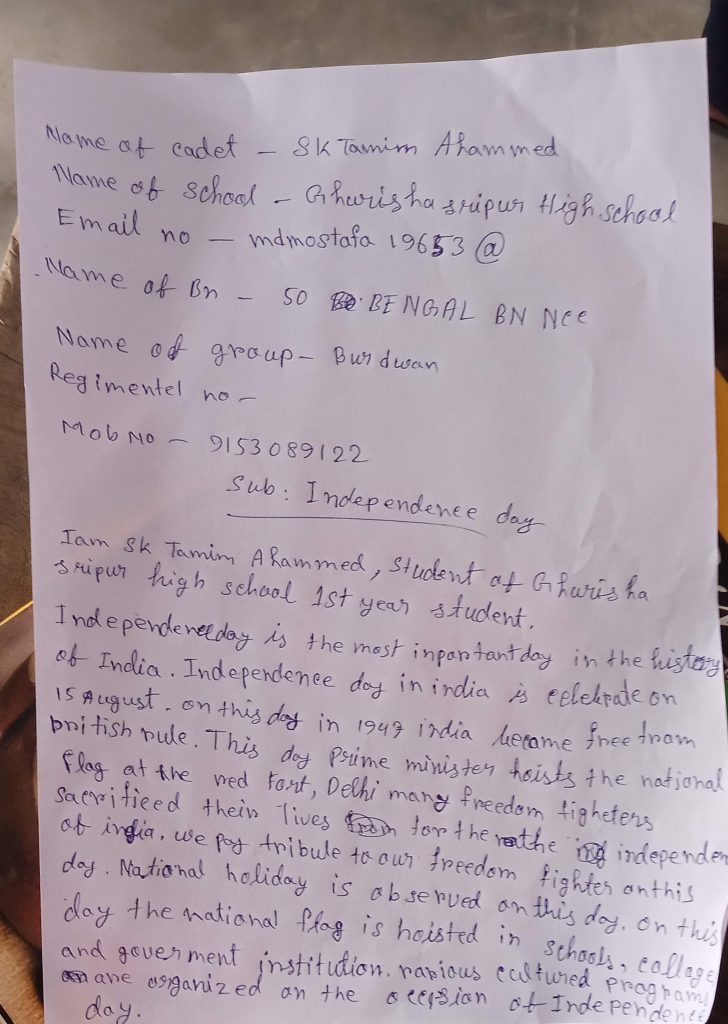 Name of cadet - SK Tamim Ahammed
Name of School - Ghurisha sripur High school
Email no - mdmostafa 19653 @
Name of Bn - 50 BENGAL BN NCC
Name of group - Burdwan
Regimentel no -
Mob No - 9153089122
Sub: Independence day
Iam SK Tamim Ahammed, student of Ghurisha
sripur high school 1st year student.
Independenceday is the most inportant day in the history
of India. Independence day in india is celebrate on
15 August. on this day in 1947 india became free from
british rule. This day prime minister hoists the national
flag at the red fort, Delhi many freedom figheters
sacrificed their lives for the independen
of india, we pay tribute to our freedom fighter on this
day. National holiday is observed on this day. on this
day the national flag is hoisted in schools, collage
and goverment institution. various cultured programs
are organized on the occasion of Independence
day.